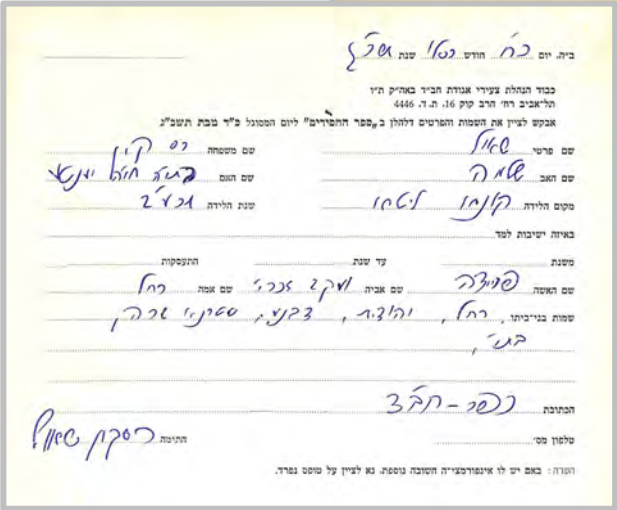 ב״ה. יום כ״ח חודש כסלו שנת תשכ״ג
כבוד הנהלת צעירי אגודת חב״ד באה״ק ת״ו
תל־אביב רח׳ הרב קוק 16. ת. ד. 4446
אבקש לציין את השמות והפרטים דלהלן ב„ספר החסידים" ליום המסוגל כ״ד טבת תשכ״ג
שם פרטי שאול שם משפחה
שם האב שלמה שם האם בתיה
מקום הלידה קונחו ליטא שנת הלידה תרע״ב
באיזה ישיבות למד
משנת עד שנת התעסקות
שם האשה פריידה שם אביה יעקב זכרי׳ שם אמה רחל
שמות בני־ביתו רחל, יהודית, שרה,
בתי׳,
הכתובת כפר־חב״ד
טלפון מס׳ חתימה שאול
הערה: באם יש לו אינפורמצי־ה חשובה נוספת. נא לציין על טופס נפרד.